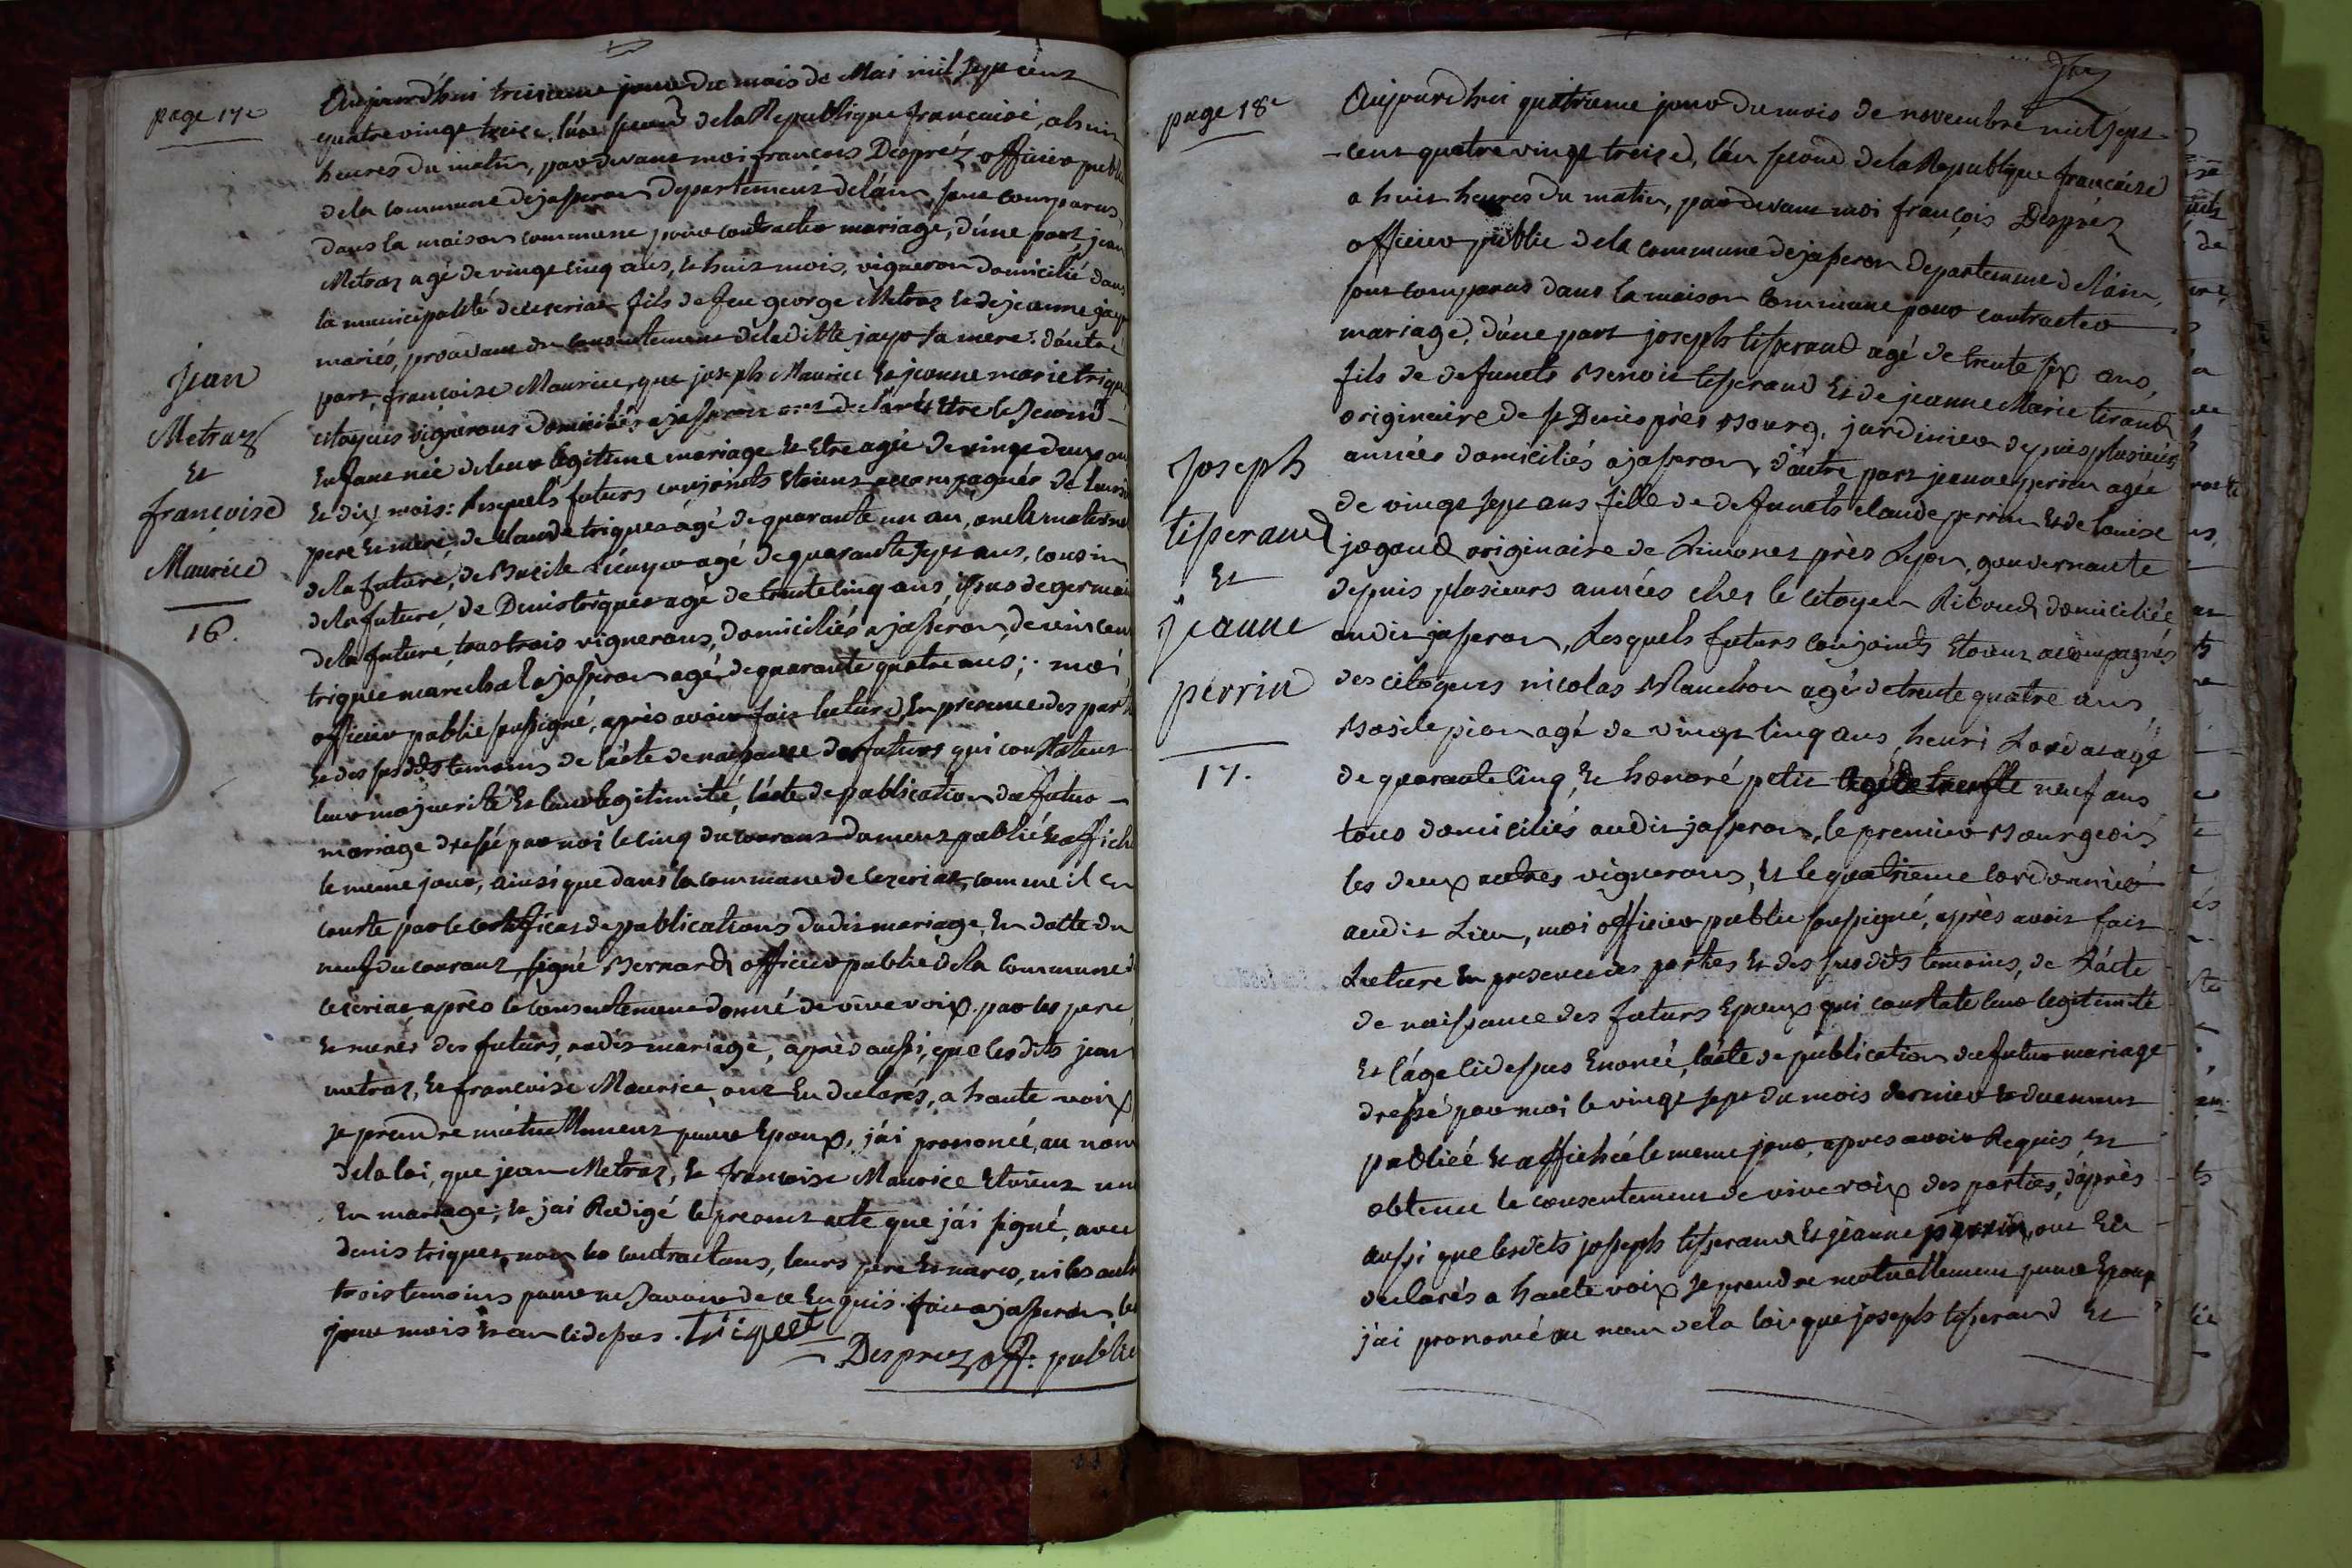 page 17e
Aujourd'hui treizieme jour du mois de Mai mil sept cens
quatre vingt treize, l'an second de la Republique francaise, a huit
heures du matin, par devant moi francois Despréz officier public
de la commune de jasseron departement de l'ain, sont comparus
dans la maison commune pour contracter mariage, d'une part jean
Metraz agé de vingt cinq ans, et huit mois, vigneron domicilié dans
la municipalité de ceseriat fils de feu george Metraz et de jeanne jayr
mariés, procedant du consentement de la ditte jayr sa mere. d'autre
part, françoise Maurice, que joseph Maurice et jeanne marie triquet
citoyens vignerons domiciliés a jasseron ont declaré etre le second
enfant née de leur legitime mariage et etre agée de vingt deux ans
et dix mois: lesquels futurs conjoints etoient accompagnés de leurs
pere et mere, de claude triquet agé de quarante un an, oncle maternel
de la future, de Basile agé de quarante sept ans, cousin
de la future, de Denis triquet agé de trente cinq ans, issus de germain
de la future, tous trois vignerons, domiciliés a jasseron, de vincent
triquet marechal a jasseron agé de quarante quatre ans; moi
officier public soussigné, après avoir fait lecture, en presence des parties
et des susdits temoins de l'acte de naissance des futurs qui constatent
leur majeurité et leur legitimité, l'acte de publication du futur
mariage dressé par moi le cinq du courant dument publié et affiché
le meme jour, ainsi que dans la commune de ceseriat, comme il en
conste par le certificat de publications dudit mariage, en datte du
neuf du courant signé Bernard officier public de la commune de
ceseriat après le consentement donné de vive voix par les pere
et meres des futurs, audit mariage, après aussi, que lesdits jean
metraz, et francoise Maurice, ont eu declarés, a haute voix
se prendre mutuellement pour epoux, j'ai prononcé, au nom
de la loi, que jean Metraz, et francoise Maurice etoient unis
en mariage, et j'ai redigé le present acte que j'ai signé, avec
denis triquet, non les contractans, leurs pere et meres, ni les autres
trois temoins pour ne savoir de ce enquis. fait a jasseron, les
jour mois et an cidessus. triquet
Desprez off. public
jean
Metraz
et
francoise
Maurice
16.
page 18e
Aujourdhui quatrieme jour du mois de novembre mil sept
cent quatre vingt treize, l'an second de la Republique francaise
a huit heures du matin, par devant moi françois Desprez
officier public de la commune de jasseron departement de l'ain,
sont comparus dans la maison commune pour contracter
mariage, d'une part joseph tisserand agé de trente six ans,
fils de defunts Benoit tisserand et de jeanne Marie tirand
originaire de st Denis près Bourg, jardinier depuis plusieurs
années domiciliés a jasseron, d'autre part jeanne perrin agée
de vingt sept ans fille de defunts claude perrin et de louise
jogand originaire de Limonest près Lyon, gouvernante
depuis plusieurs années chez le citoyen Riboud domiciliée
audit jasseron, lesquels futurs conjoints etoient accompagnés
des citoyens nicolas Mauchon agé de trente quatre ans
Basile pion agé de vingt cinq ans, henri agé
de quarante cinq, et honoré petit agé de trente neuf ans
tous domiciliés audit jasseron, le premier Bourgeois
les deux autres vignerons, et le quatrieme cordonnier
audit Lieu, moi officier public soussigné, après avoir fait
Lecture en presence des parties et des susdits temoins, de l'acte
de naissance des futurs epoux qui constate leur legitimité
et l'age cidessus enoncé, l'acte de publication du futur mariage
dressé par moi le vingt sept du mois dernier et duement
publiée et affichée le meme jour, apres avoir requis et
obtenu le consentement de vive voix des parties, d'après
aussi que lesdits joseph tisserand et jeanne perrin, ont eu
declarés a haute voix se prendre mutuellement pour epoux
j'ai prononcé au nom de la loi que joseph tisserand et
joseph
tisserand
et
jeanne
perrin
17.